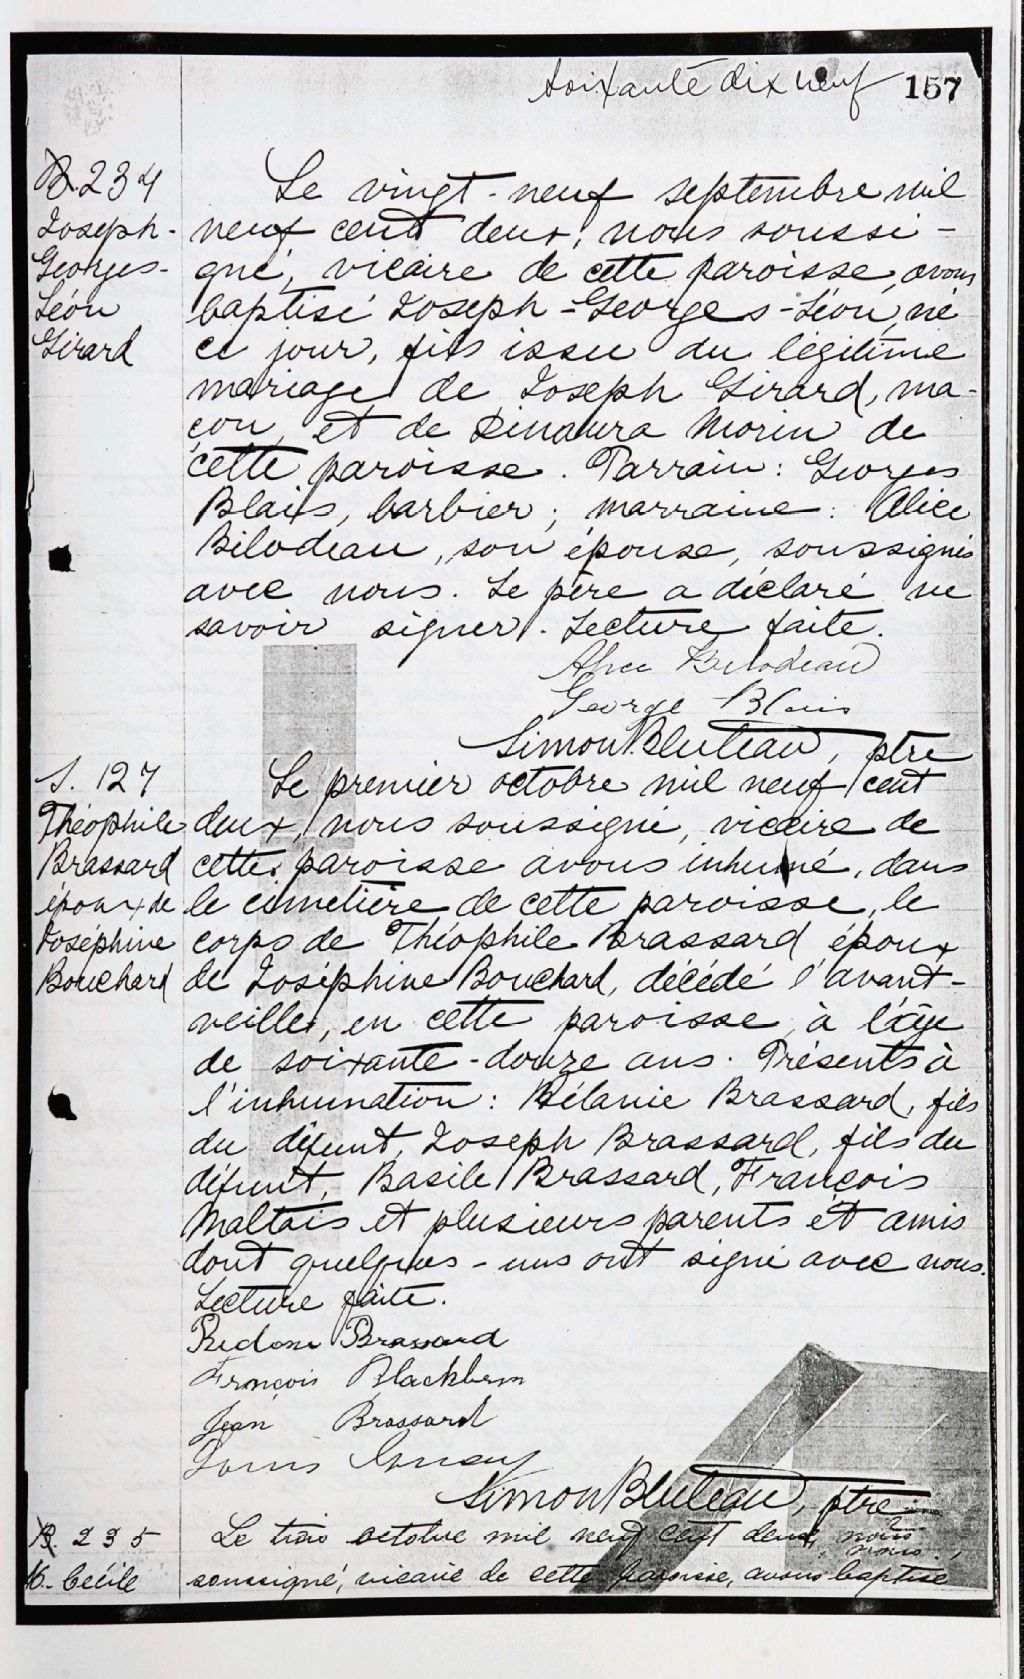 soixante dix neuf 157
B. 234
Joseph-
Georges-
Léon
Girard
Le vingt-neuf septembre mil
neuf cent deux, nous soussi-
gné, vicaire de cette paroisse, avons
baptisé Joseph-Georges-Léon, né
ce jour, fils issu du légitime
mariage de Joseph Girard, ma-
çon, et de Dinaura Morin de
cette paroisse. Parrain: Georges
Blais, barbier; marraine: Alice
Bilodeau, son épouse, soussignés
avec nous. Le père a déclaré ne
savoir signer. Lecture faite.
Alice Bilodeau
George Blais
Simon Bluteau, ptre
S. 127
Théophile
Brassard
époux de
Joséphine
Bouchard
Le premier octobre mil neuf cent
deux, nous soussigné, vicaire de
cette paroisse avons inhumé, dans
le cimetière de cette paroisse, le
corps de Théophile Brassard époux
de Joséphine Bouchard, décédé l'avant-
veille, en cette paroisse, à l'âge
de soixante-douze ans. Présents à
l'inhumation: Bélanie Brassard, fils
du défunt, Joseph Brassard, fils du
défunt, Basile Brassard, François
Maltais et plusieurs parents et amis
dont quelques-uns ont signé avec nous.
Lecture faite.
Brassard
François Blackburn
Jean Brassard
Simon Bluteau, ptre
B. 235
M. Cécile
Le trois octobre mil neuf cent deux, nous
soussigné, vicaire de cette paroisse, avons baptisé